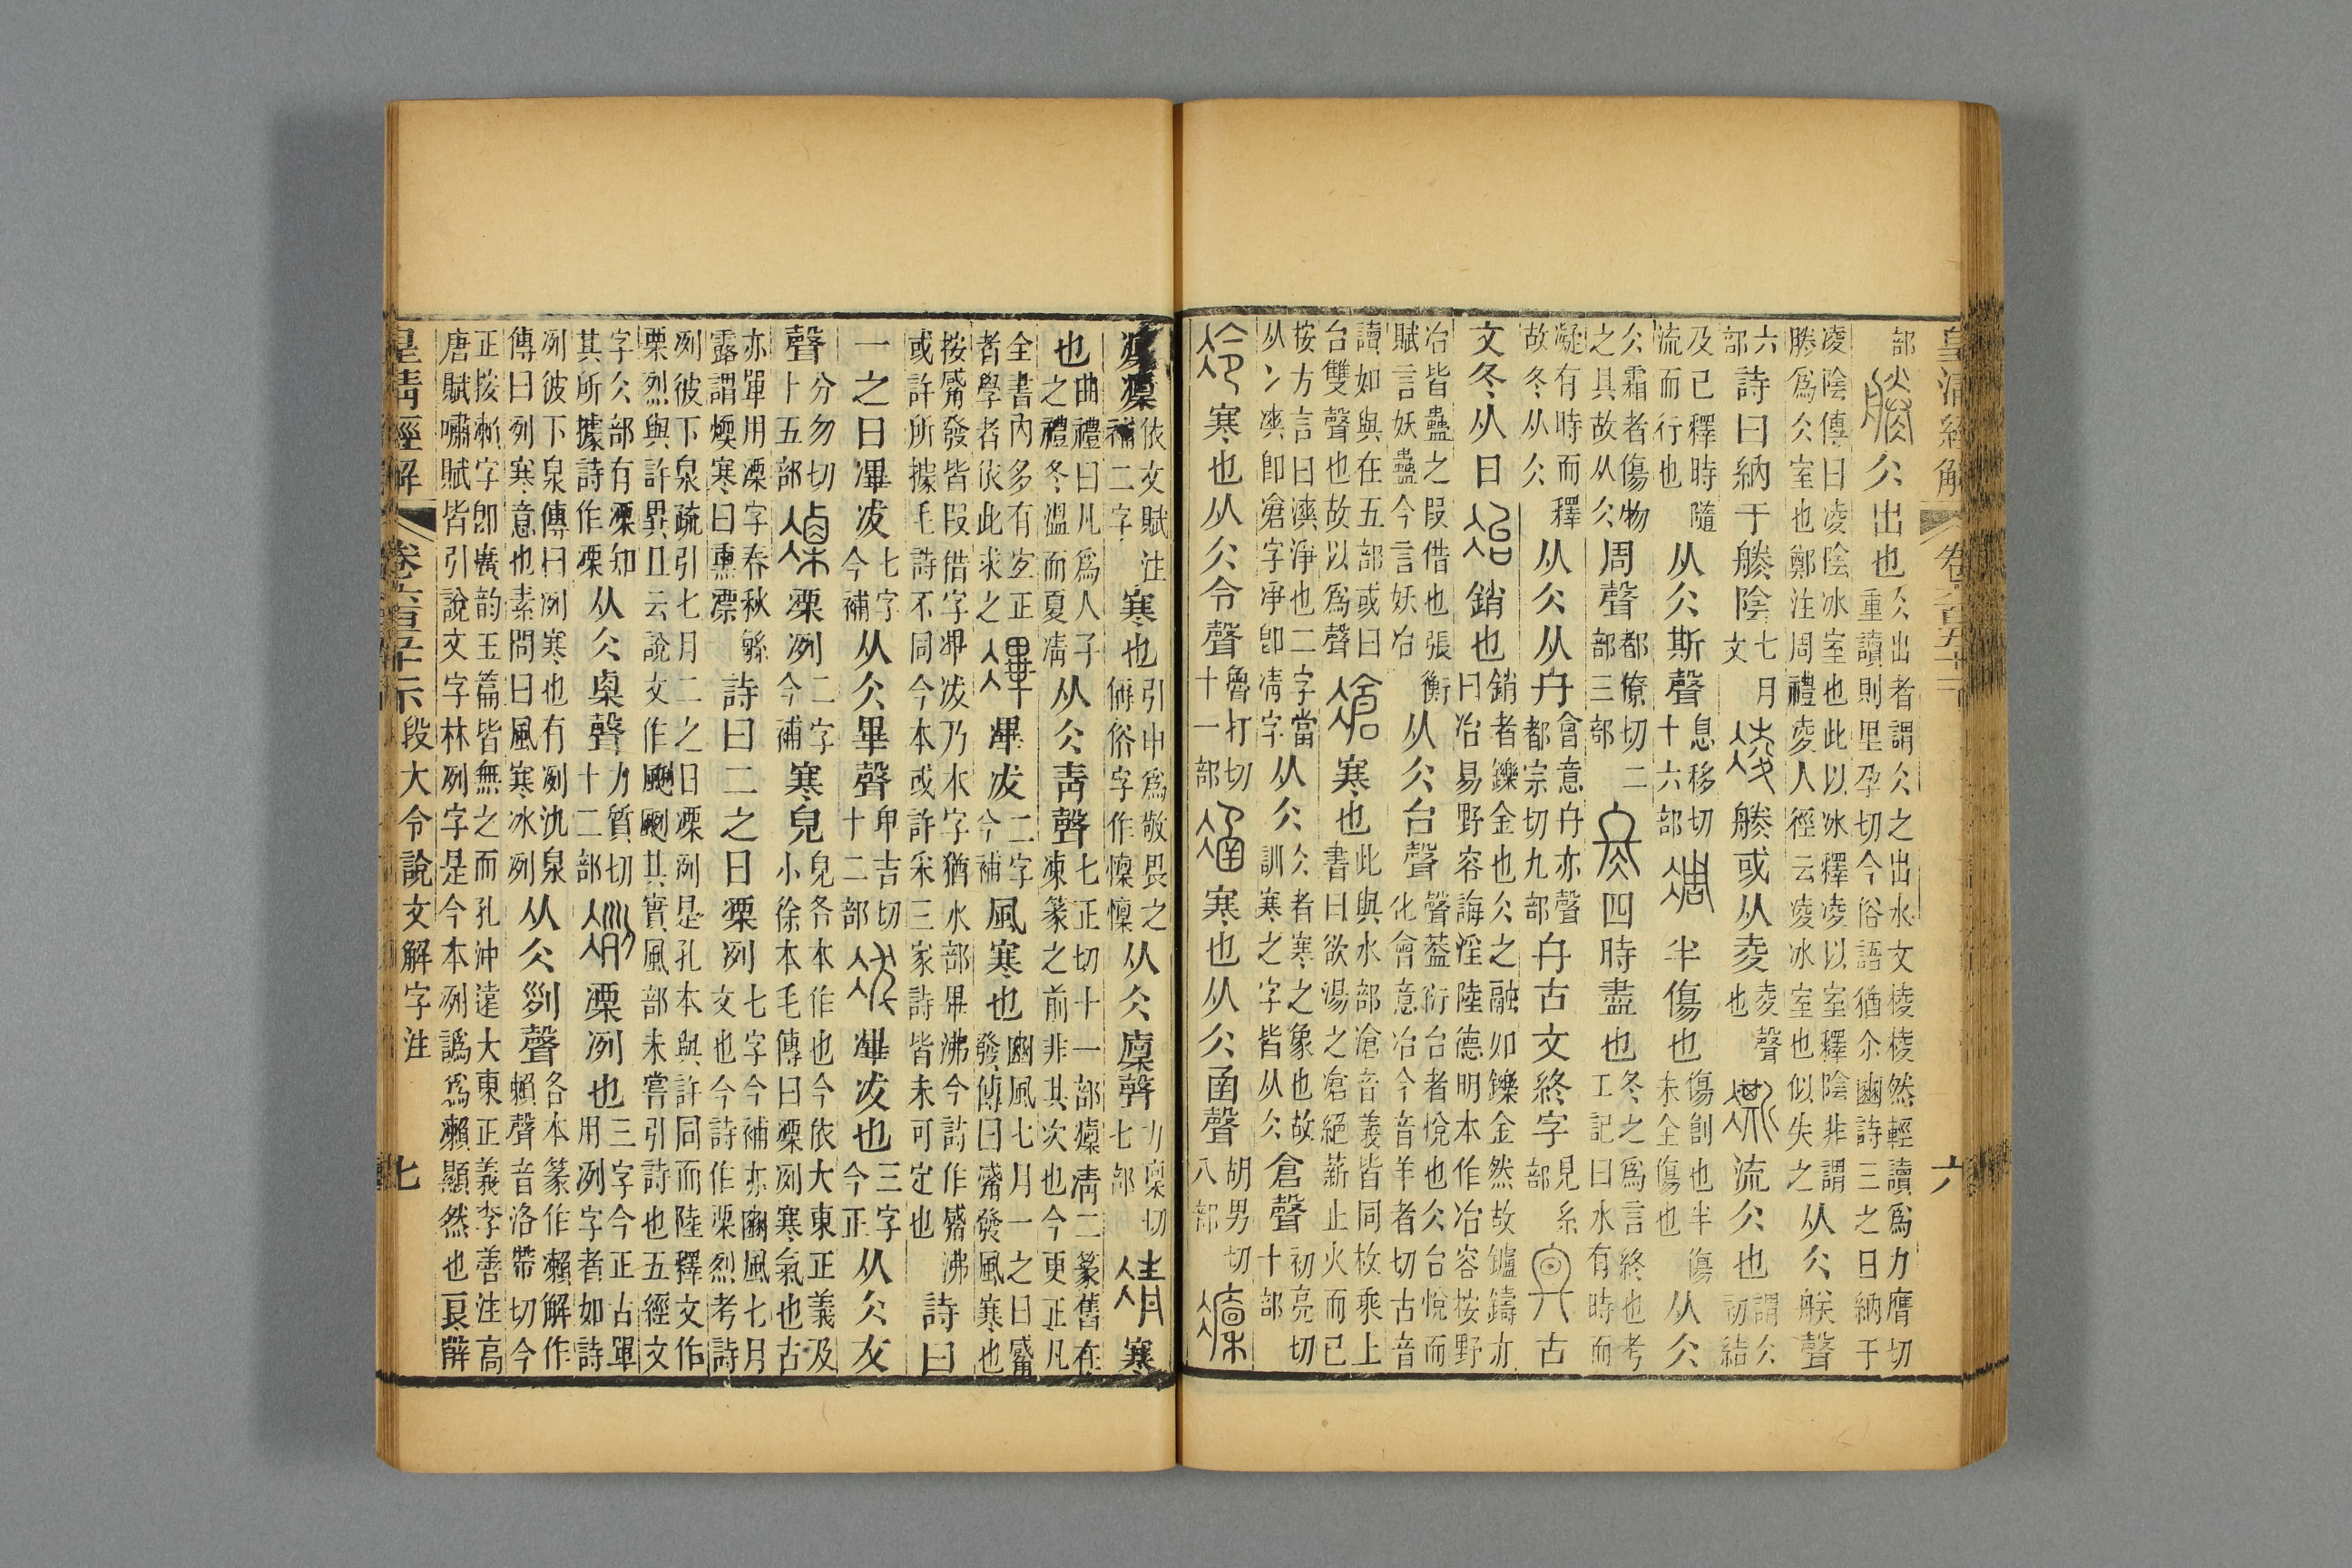 皇清經解 卷六百五十二 六
部 仌出也仌出者謂仌之出水文棱棱然輕讀爲力膺切
重讀則里孕切今俗語猶余豳詩三之日納于
凌陰傳曰凌陰冰室也此以冰釋凌以室釋陰非謂
㓘爲仌室也鄭注周禮凌人徑云凌冰室也似失之从仌朕聲
六部詩曰納于㓘陰七月文 㓘或从夌夌聲也 流仌也謂仌初結
及已釋時隨流而行也从仌斯聲息移切十六部 半傷也傷創也半傷未全傷也从仌
仌霜者傷物之具故从仌周聲都僚切二部三部 四時盡也冬之爲言終也考工記曰水有時而
凝有時而釋故冬从仌从仌从夂會意夂亦聲都宗切九部夂古文終字見糸部 古
文冬从日 銷也銷者鑠金也仌之融如鑠金然故鑪鑄亦曰冶易野容誨淫陸德明本作冶容按野
冶皆蠱之叚借也張衡賦言妖蠱今言妖冶从仌台聲聲葢衍台者悅也仌台悅而化會意冶今音羊者切古音
讀如與在五部或曰台雙聲也故以爲聲 寒也此與水部滄音義皆同枚乘上書曰欲湯之凔絕薪止火而已
按方言曰㵾淨也二字當从冫㓽卽凔字凈卽凊字从仌仌者寒之象也故訓寒之字皆从仌倉聲初亮切十部
寒也从仌令聲魯打切十一部 寒也从仌圅聲胡男切八部
凜依文賦注補二字寒也引申爲敬畏之偁俗字作懍懍从仌廩聲力稟切七部 寒
也曲禮曰凡爲人子之禮冬溫而夏凊从仌靑聲七正切十一部凜凊二篆舊在凍篆之前非其次也今更正凡
全書內多有宐正者學者依此求之 滭冹二字今補風寒也豳風七月一之日觱發傳曰觱發風寒也
按觱發皆叚借字滭冹乃本字猶水部畢沸今詩作觱沸或許所據毛詩不同今本或許采三家詩皆未可定也詩曰
一之日滭冹七字今補从仌畢聲卑吉切十二部 滭冹也三字今正从仌犮
聲分勿切十五部 凓冽二字今補寒皃皃各本作也今依大東正義及小徐本毛傳曰凓冽寒氣也古
亦單用凓字春秋緐露謂煗寒曰熏凓詩曰二之日凓冽七字今補亦豳風七月文也今詩作栗烈考詩
冽彼下泉疏引七月二之日凓冽是孔本與許同而陸釋文作栗烈與許異且云說文作颲颲其實風部未嘗引詩也五經文
字仌部有凓知其所據詩作凓从仌㮚聲力質切十二部 凓冽也三字今正古單用冽字者如詩
冽彼下泉傳曰冽寒也有冽氿泉傳曰冽寒意也素問曰風寒冰冽从仌剡聲各本篆作瀨解作賴聲音洛帶切今
正按瀨字卽廣韵玉篇皆無之而孔沖遠大東正義李善注高唐賦嘯賦皆引說文字林冽字是今本冽譌爲瀨顯然也
皇清經解 卷六百五十二 段大令說文解字注 七